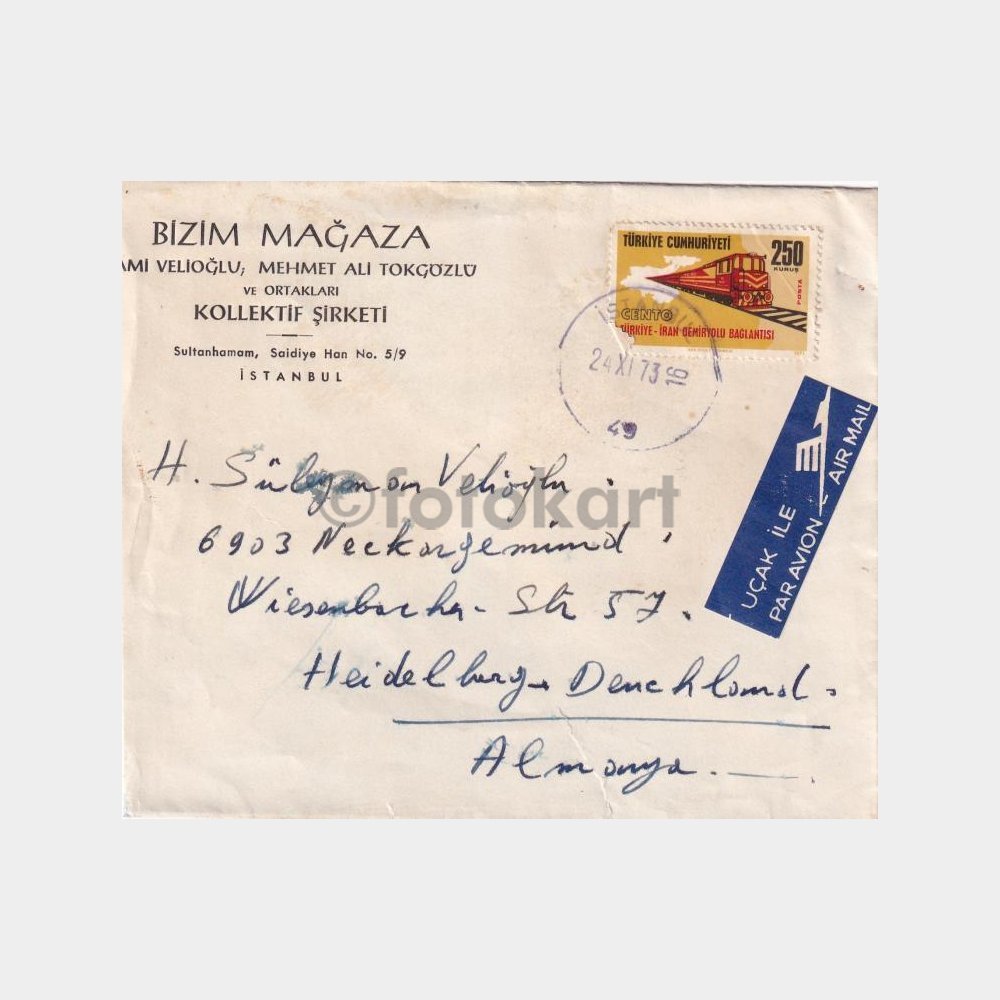 BİZİM MAĞAZA
AMİ VELİOĞLU; MEHMET ALİ TOKGÖZLÜ
VE ORTAKLARI
KOLLEKTİF ŞİRKETİ
Sultanhamam, Saidiye Han No. 5/9
İSTANBUL
TÜRKİYE CUMHURİYETİ
250
KURUŞ
POSTA
CENTO
TÜRKİYE - İRAN DEMİRYOLU BAĞLANTISI
İSTANBUL
24 XI 73 16
49
UÇAK İLE
PAR AVION AIR MAIL
H. Süleyman Velioğlu.
6903 Neckargemünd,
Wiesenbacher Str 57.
Heidelberg - Deuchland.
Almanya.
©fotokart